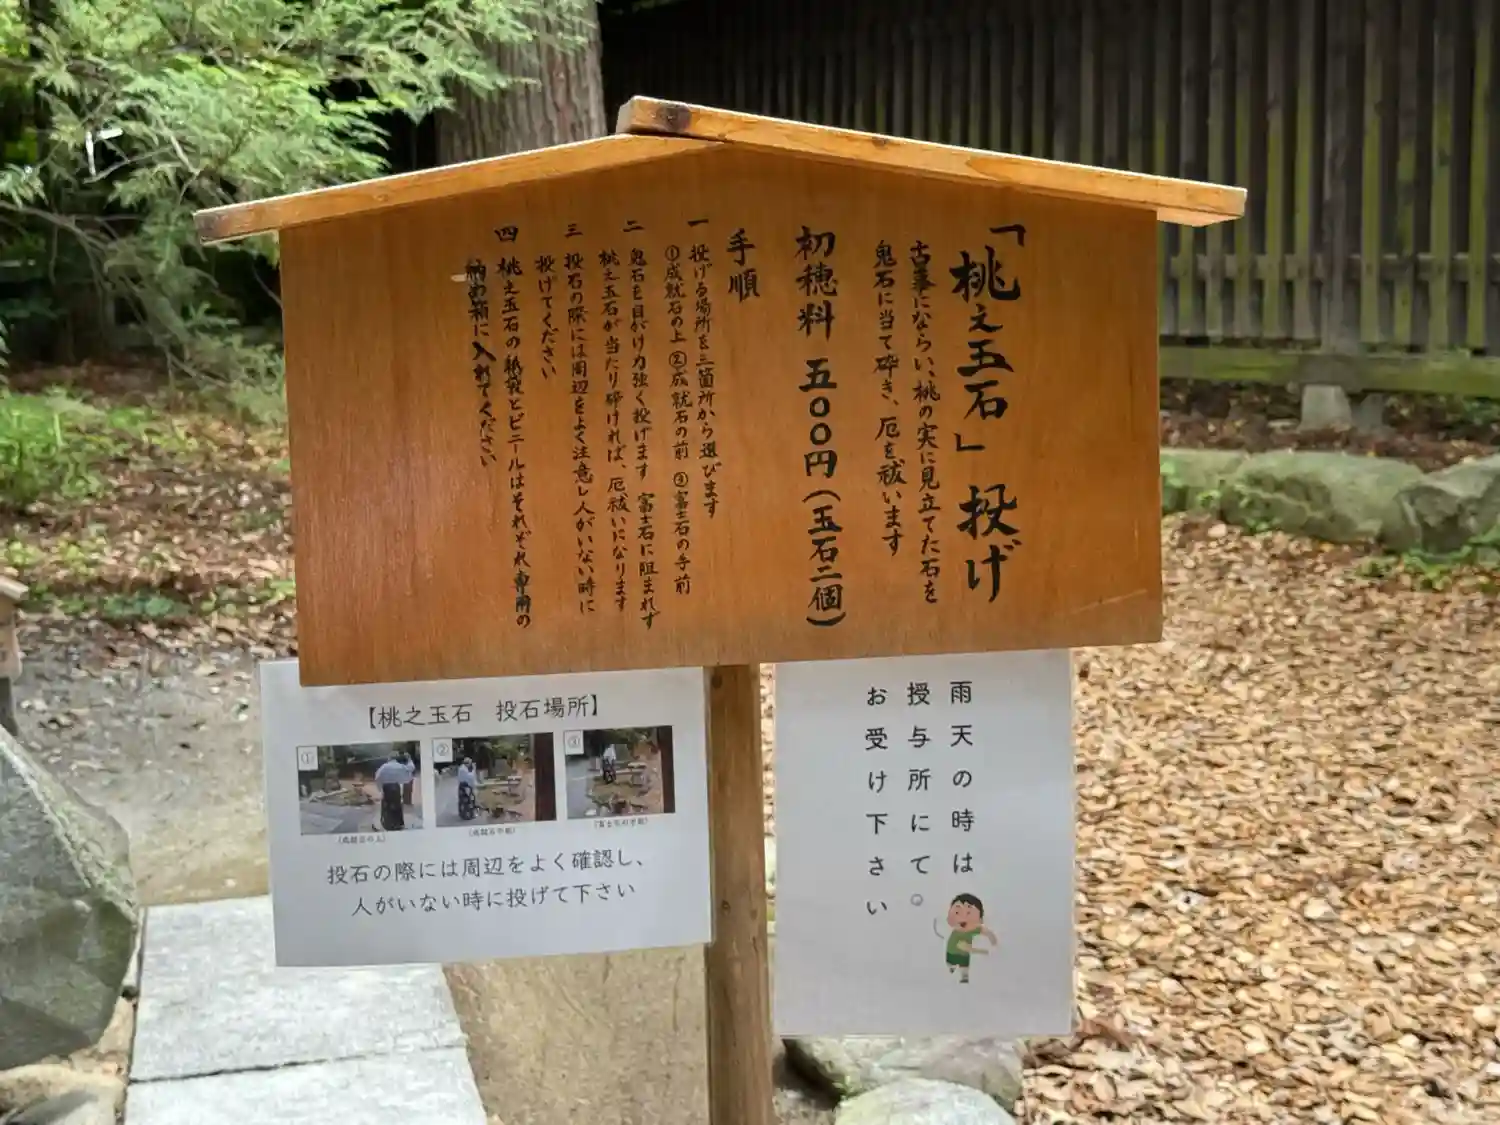 「桃之玉石」投げ
古事にならい、桃の実に見立てた石を
鬼石に当て砕き、厄を祓います
初穂料 五〇〇円(玉石二個)
手順
一 投げる場所を三箇所から選びます
①成就石の上 ②成就石の前 ③富士石の手前
二 鬼石を目がけ力強く投げます 富士石に阻まれず
桃之玉石が当たり砕ければ、厄祓いになります
三 投石の際には周辺をよく注意し人がいない時に
投げてください
四 桃之玉石の紙袋とビニールはそれぞれ専用の
納め箱に入れてください
【桃之玉石 投石場所】
①
②
③
(成就石の上)
(成就石の前)
(富士石の手前)
投石の際には周辺をよく確認し、
人がいない時に投げて下さい
雨天の時は
授与所にて。
お受け下さい